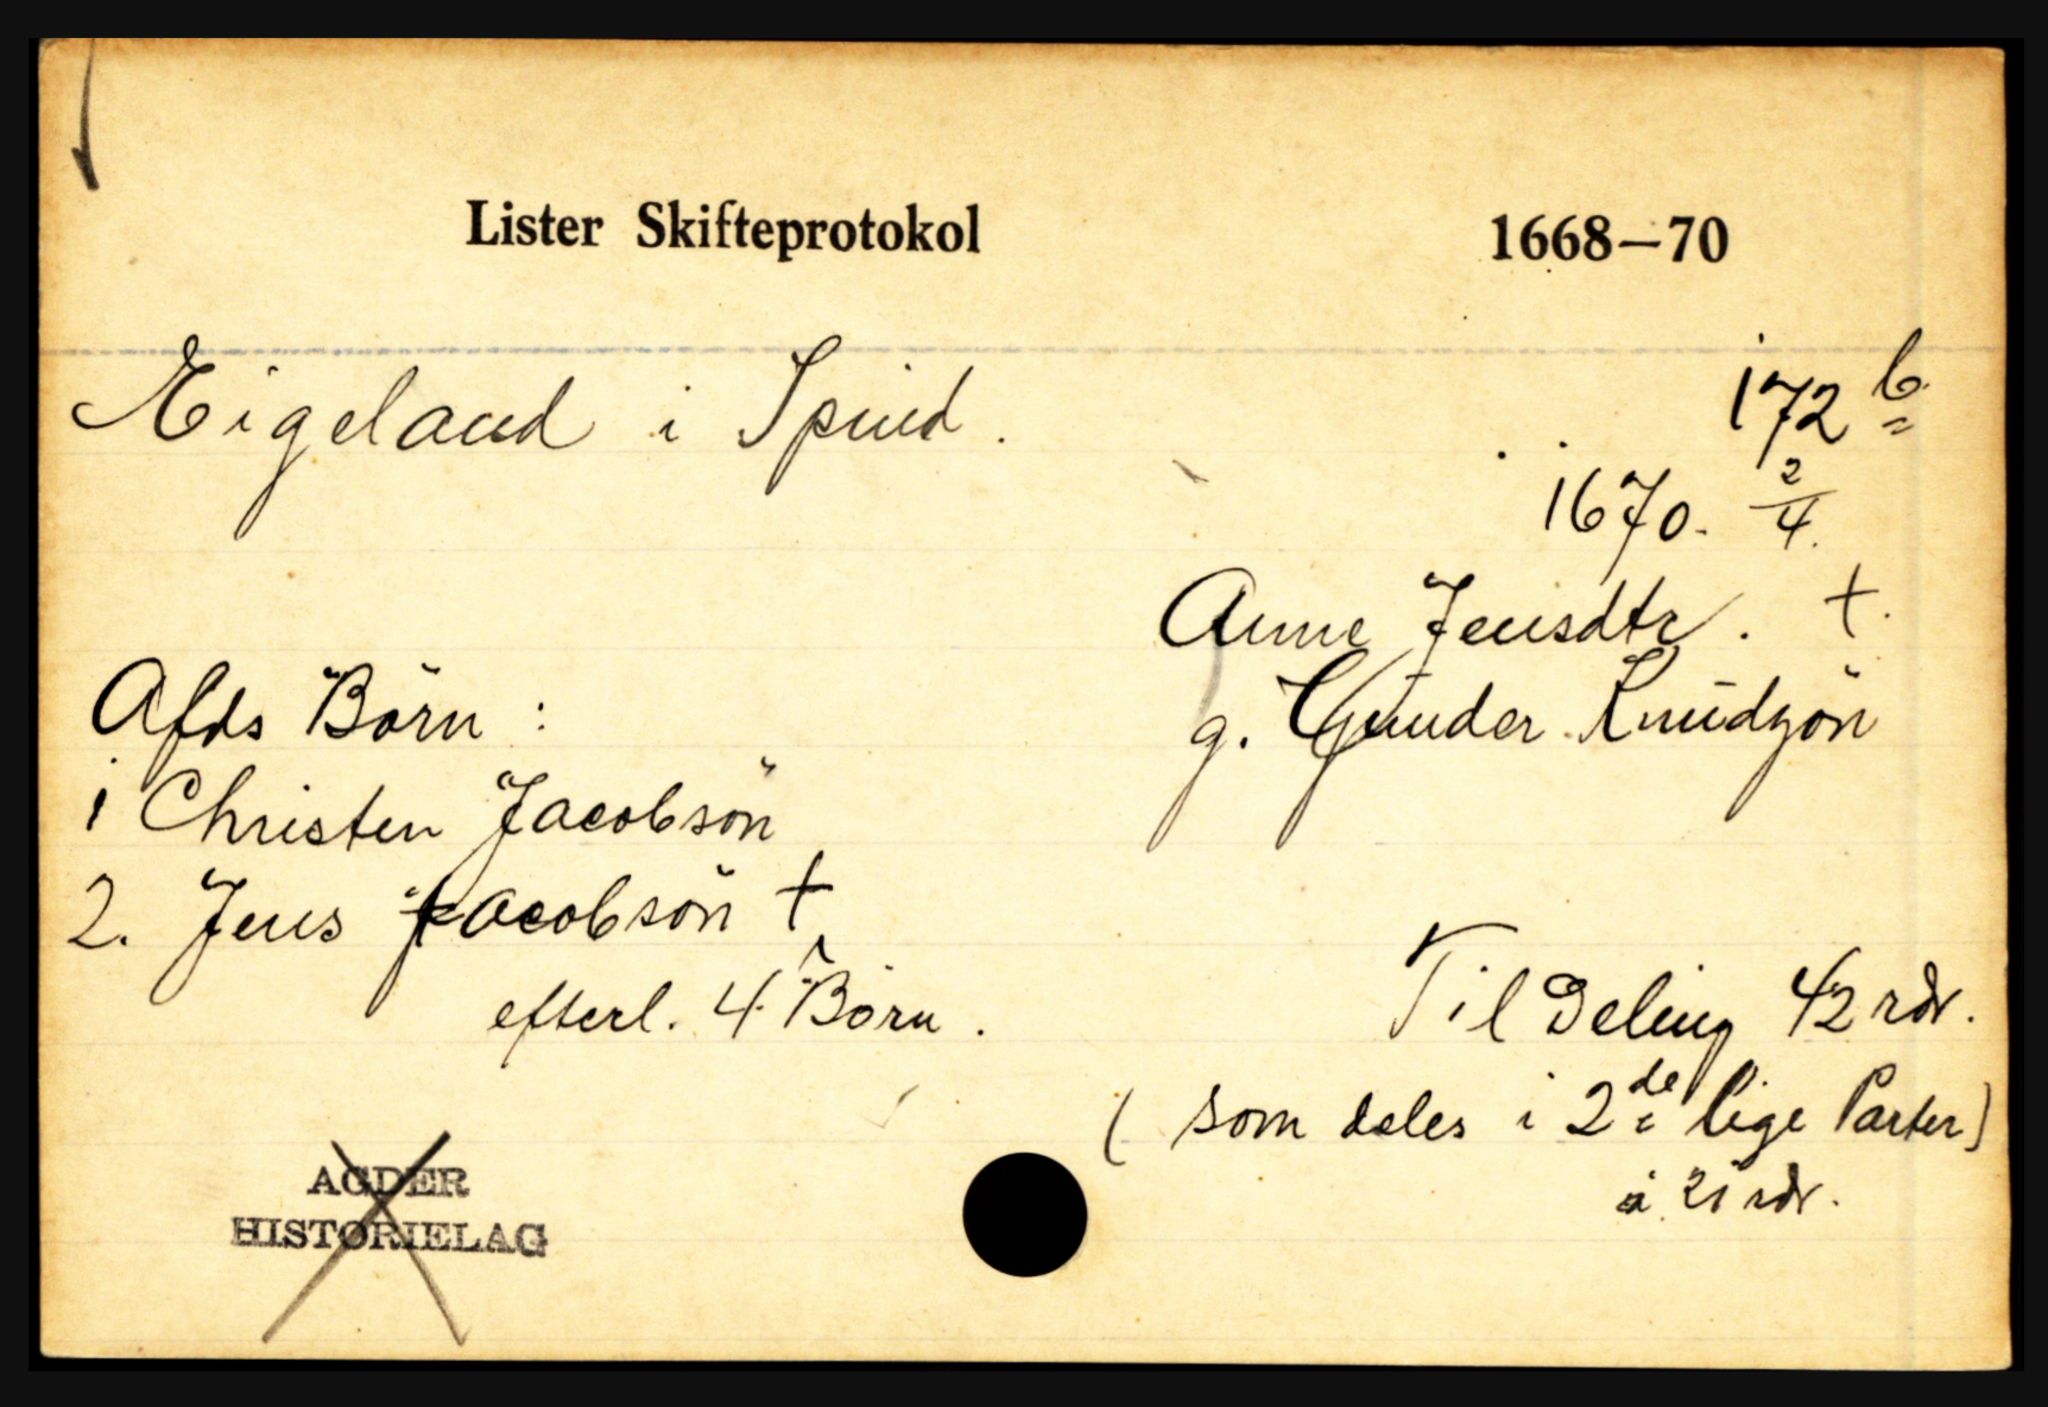 Lister Skifteprotokol 1668–70
Eigeland i Spind. 172 b
1670. 2/4.
Anne Jensdtr. +.
g. Gunder Knudzön
Afds Börn :
1 Christen Jacobsön
2. Jens Jacobsön +
efterl. 4 Börn.
Til Deling 42 rdr.
( som deles i 2de lige Parter)
à 21 rdr.
AGDER
HISTORIELAG